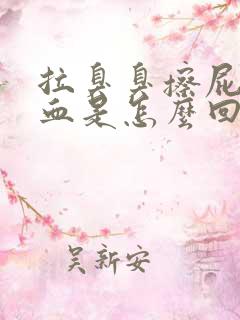 拉臭臭擦屁
血是怎麼回
吴新安